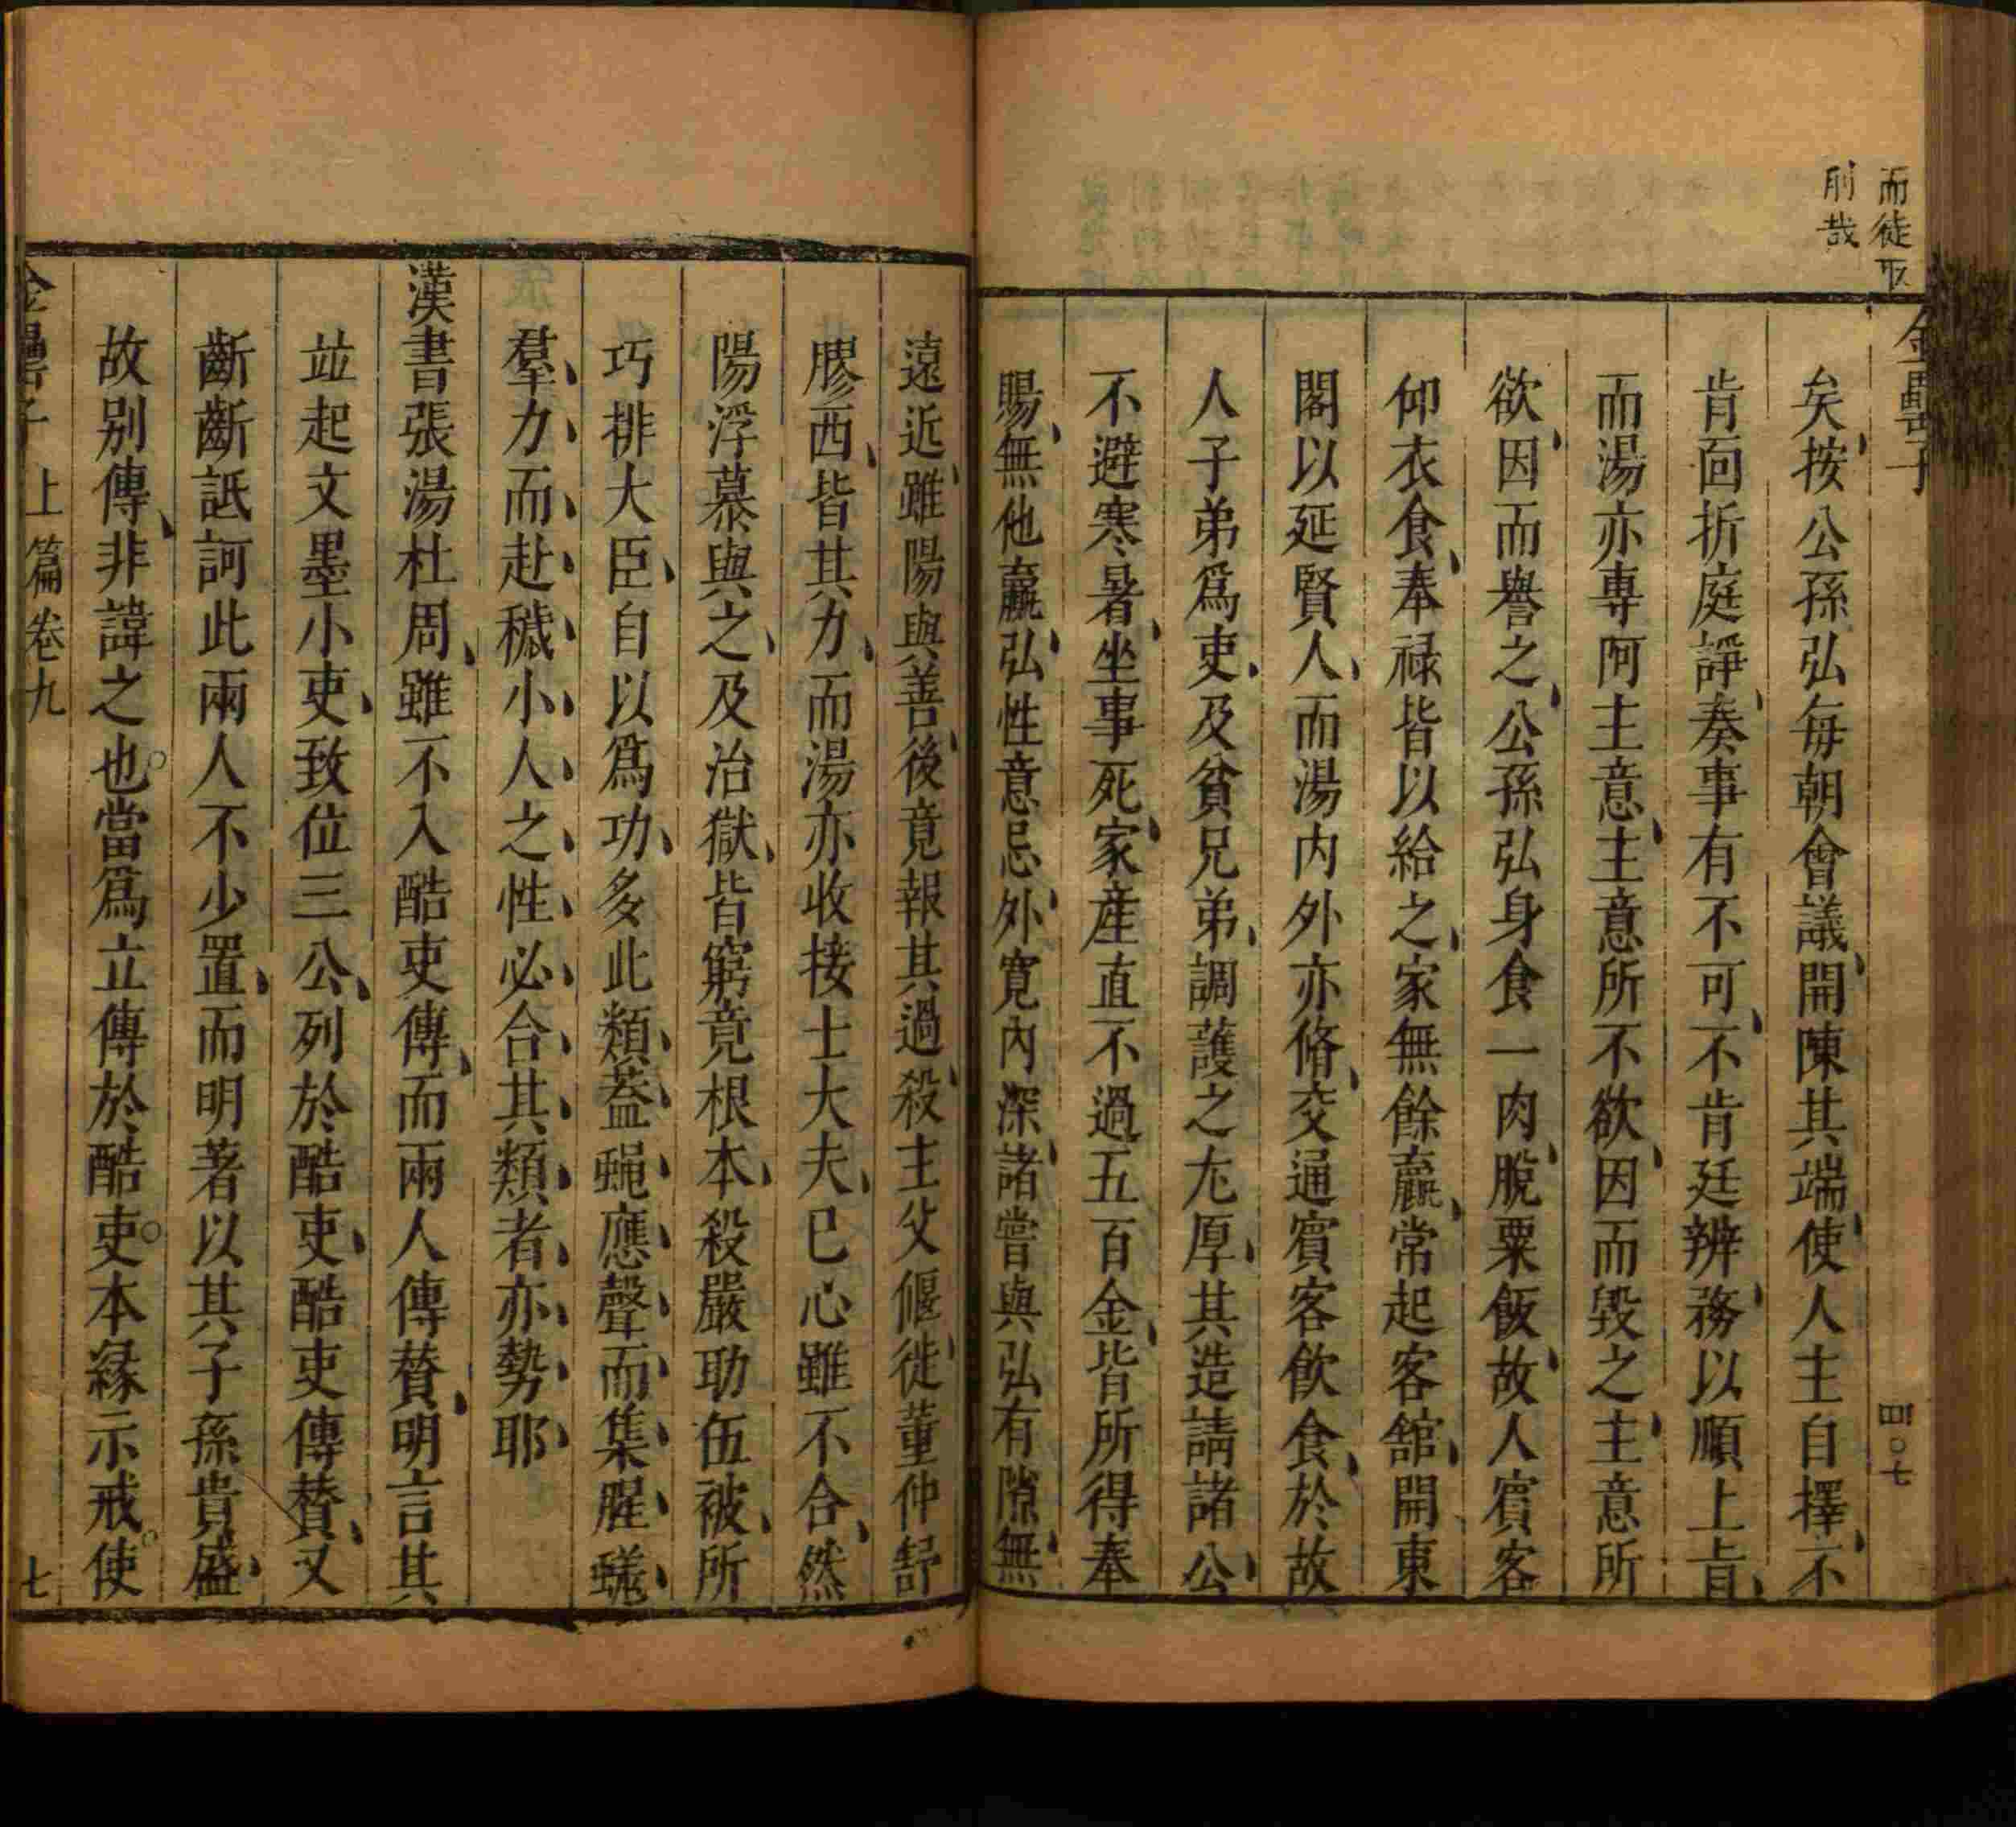 而徒取
刖哉
金罍子
四〇七
矣按公孫弘每朝會議開陳其端使人主自擇不
肯面折庭諍奏事有不可不肯廷辨務以順上㫖
而湯亦專阿主意主意所不欲因而毀之主意所
欲因而譽之公孫弘身食一肉脫粟飯故人賓客
仰衣食奉祿皆以給之家無餘贏常起客舘開東
閣以延賢人而湯内外亦脩交通賓客飲食於故
人子弟爲吏及貧兄弟調護之尤厚其造請諸公
不避寒暑坐事死家產直不過五百金皆所得奉
賜無他贏弘性意忌外寛内深諸嘗與弘有隙無
遠近雖陽與善後竟報其過殺主父偃徙董仲舒
膠西皆其力而湯亦收接士大夫已心雖不合然
陽浮慕與之及治獄皆窮竟根本殺嚴助伍被所
巧排大臣自以爲功多此類蓋蝇應聲而集腥蟻
羣力而赴穢小人之性必合其類者亦勢耶
漢書張湯杜周雖不入酷吏傳而兩人傳賛明言其
並起文墨小吏致位三公列於酷吏酷吏傳賛又
斷斷詆訶此兩人不少置而明著以其子孫貴盛
故别傳非諱之也當爲立傳於酷吏本緣示戒使
金罍子 上篇卷九
七